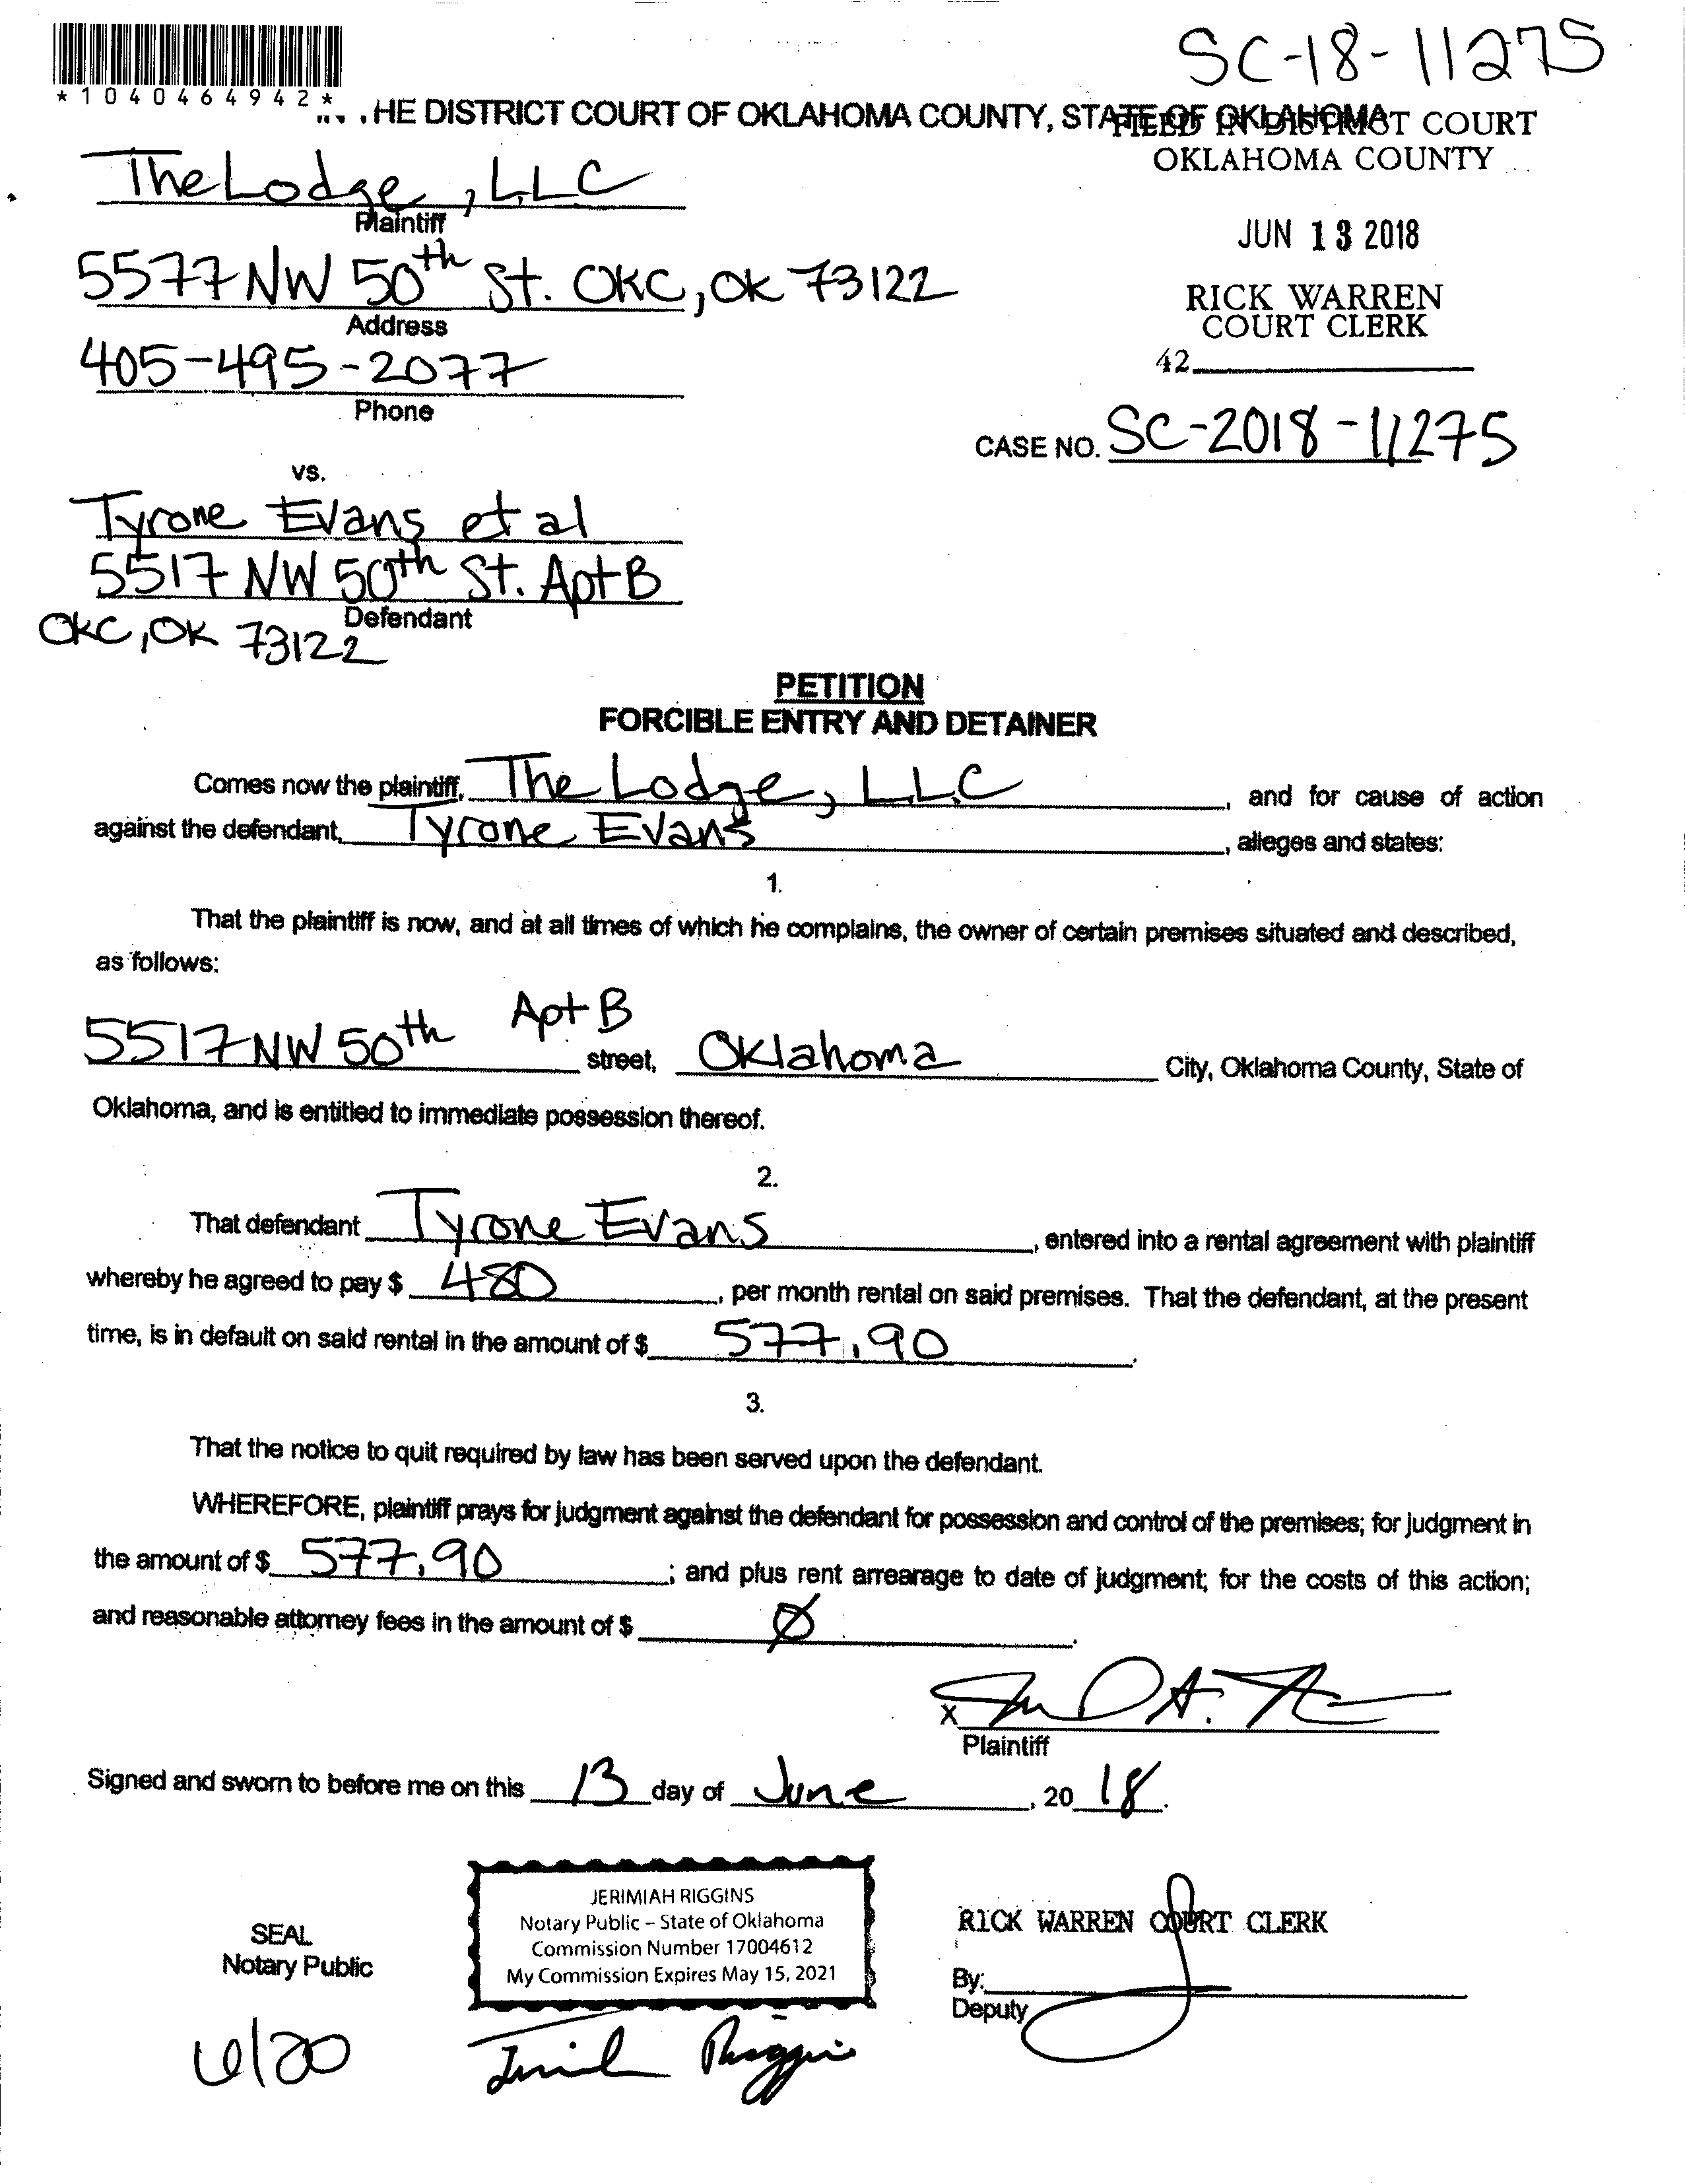 SC-18-11275
*1040464942*
HE DISTRICT COURT OF OKLAHOMA COUNTY, STATE OF OKLAHOMA
FILED IN DISTRICT COURT
OKLAHOMA COUNTY
The Lodge, LLC
Plaintiff
JUN 13 2018
5577 NW 50th St. OKC, OK 73122
Address
RICK WARREN
COURT CLERK
405-495-2077
Phone
42
CASE NO. SC-2018-11275
vs.
Tyrone Evans et al
5517 NW 50th St. Apt B
Defendant
OKC, OK 73122
PETITION
FORCIBLE ENTRY AND DETAINER
Comes now the plaintiff, The Lodge, LLC, and for cause of action
against the defendant, Tyrone Evans, alleges and states:
1.
That the plaintiff is now, and at all times of which he complains, the owner of certain premises situated and described,
as follows:
5517 NW 50th Apt B street, Oklahoma City, Oklahoma County, State of
Oklahoma, and is entitled to immediate possession thereof.
2.
That defendant Tyrone Evans, entered into a rental agreement with plaintiff
whereby he agreed to pay $ 480, per month rental on said premises. That the defendant, at the present
time, is in default on said rental in the amount of $ 577.90.
3.
That the notice to quit required by law has been served upon the defendant.
WHEREFORE, plaintiff prays for judgment against the defendant for possession and control of the premises; for judgment in
the amount of $ 577.90; and plus rent arrearage to date of judgment; for the costs of this action;
and reasonable attorney fees in the amount of $ Ø.
X
Plaintiff
Signed and sworn to before me on this 13 day of June, 20 18.
JERIMIAH RIGGINS
Notary Public – State of Oklahoma
Commission Number 17004612
My Commission Expires May 15, 2021
SEAL
Notary Public
RICK WARREN COURT CLERK
By:
Deputy
6/20
Jerimiah Riggins